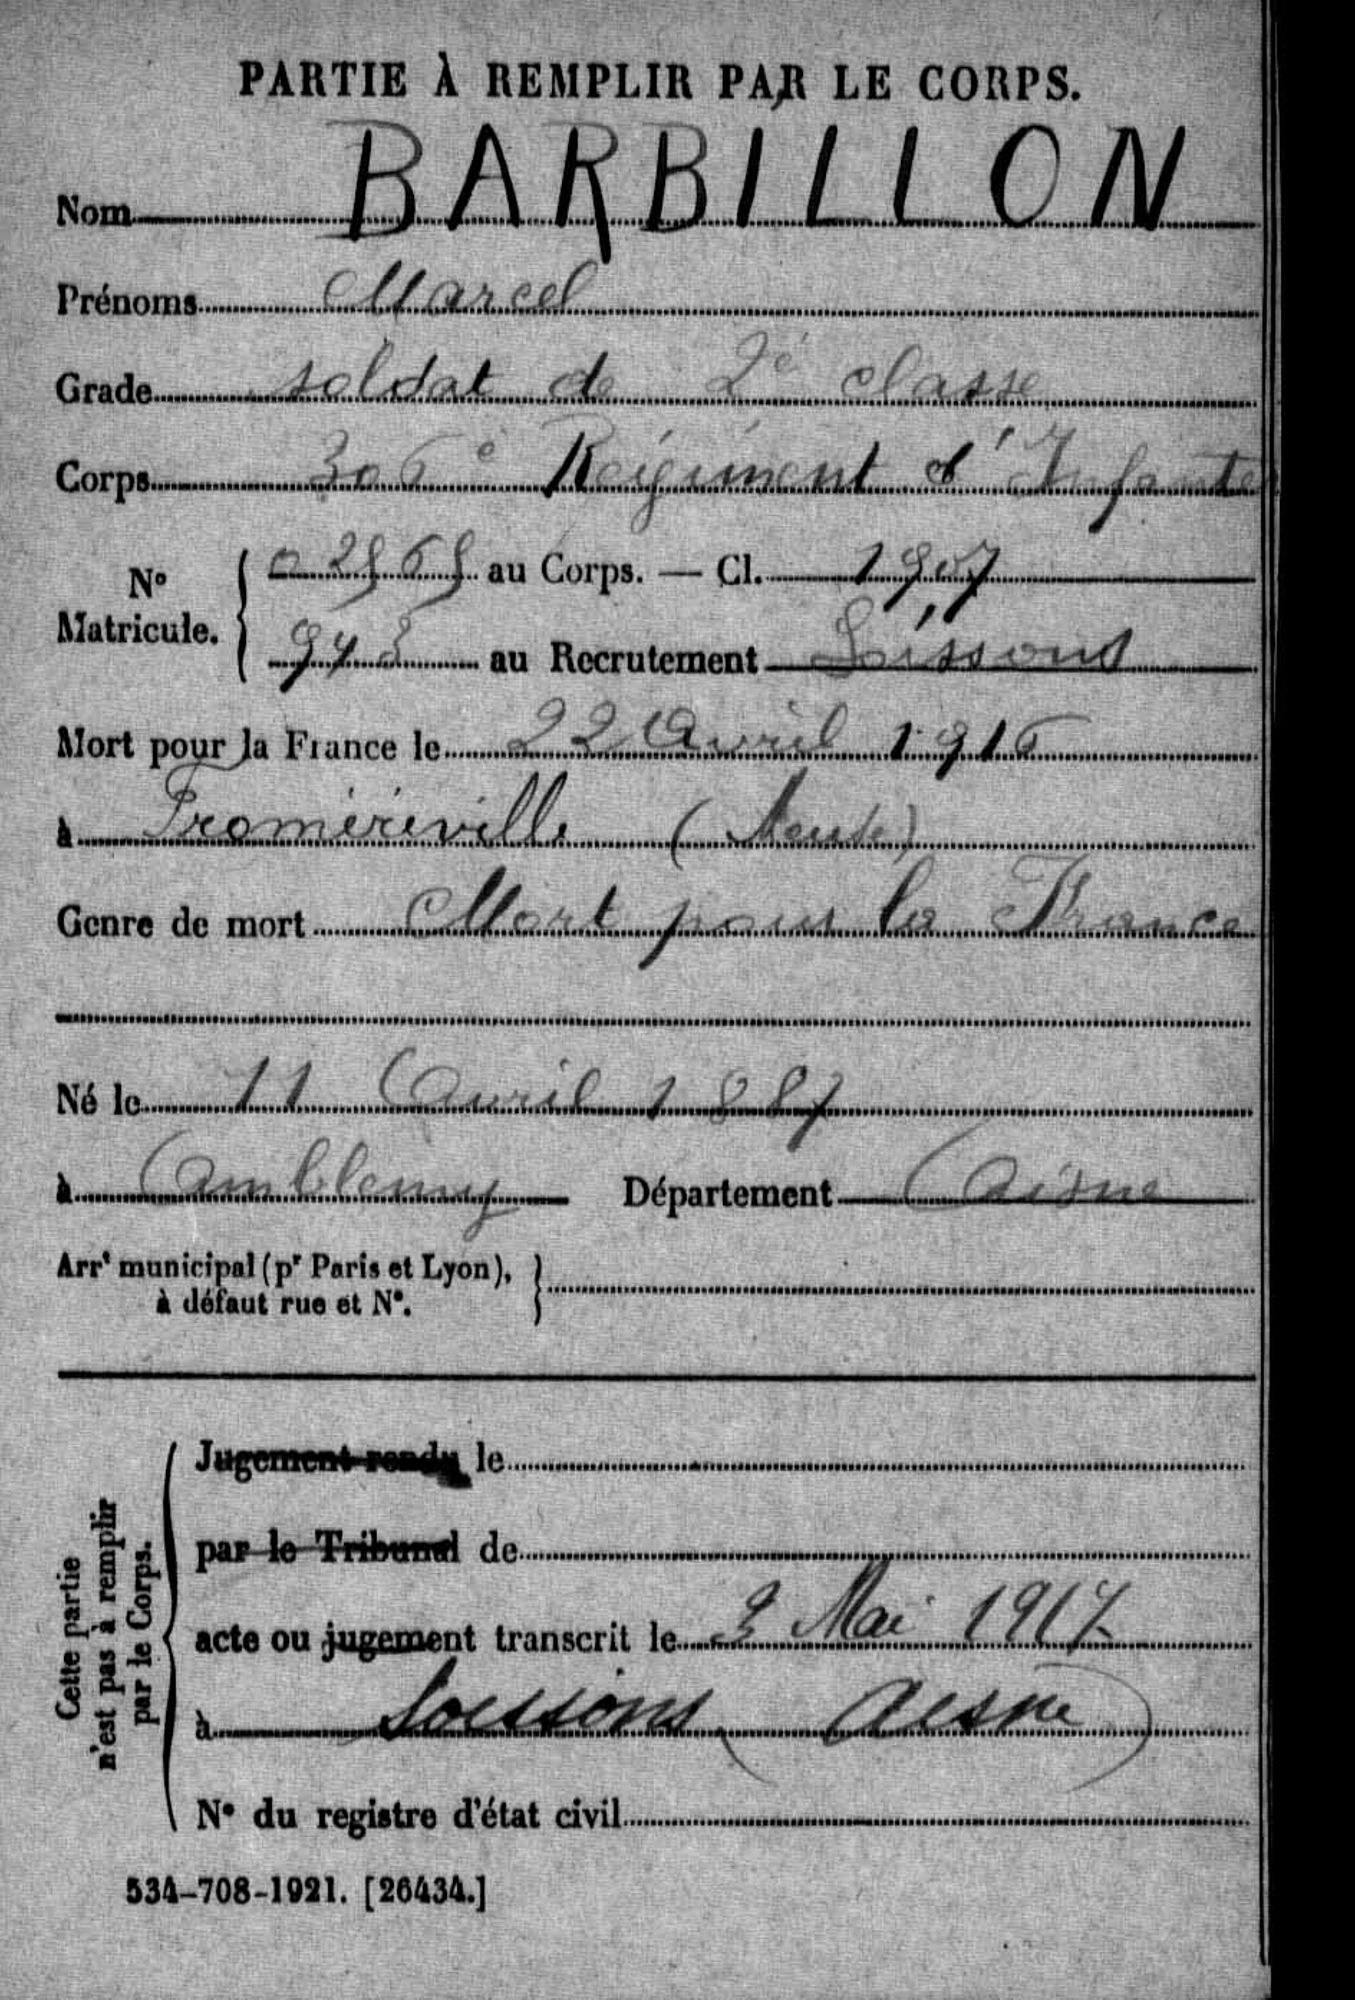 PARTIE À REMPLIR PAR LE CORPS.
Nom BARBILLON
Prénoms Marcel
Grade soldat de 2e classe
Corps 306e Régiment d'Infanterie
N° Matricule. { 02565 au Corps. — Cl. 1907
943 au Recrutement Soissons
Mort pour la France le 22 Avril 1916
à Froméréville (Meuse)
Genre de mort Mort pour la France
Né le 11 Avril 1887
à Ambleny Département Aisne
Arrt municipal (pr Paris et Lyon), }
à défaut rue et N°.
Cette partie
n'est pas à remplir
par le Corps.
Jugement rendu le
par le Tribunal de
acte ou jugement transcrit le 3 Mai 1917
à Soissons (Aisne)
N° du registre d'état civil
534-708-1921. [26434.]